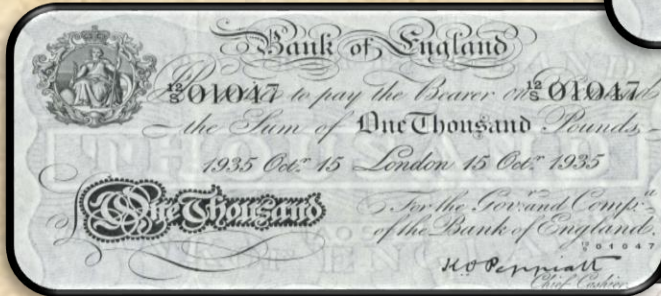 Bank of England
12/S 01047 to pay the Bearer on 12/S 01047
the Sum of One Thousand Pounds
1935 Oct.r 15 London 15 Oct.r 1935
For the Gov.r and Comp.a
One Thousand
of the Bank of England.
01047
K O Peppiatt
Chief Cashier
THOUSAND